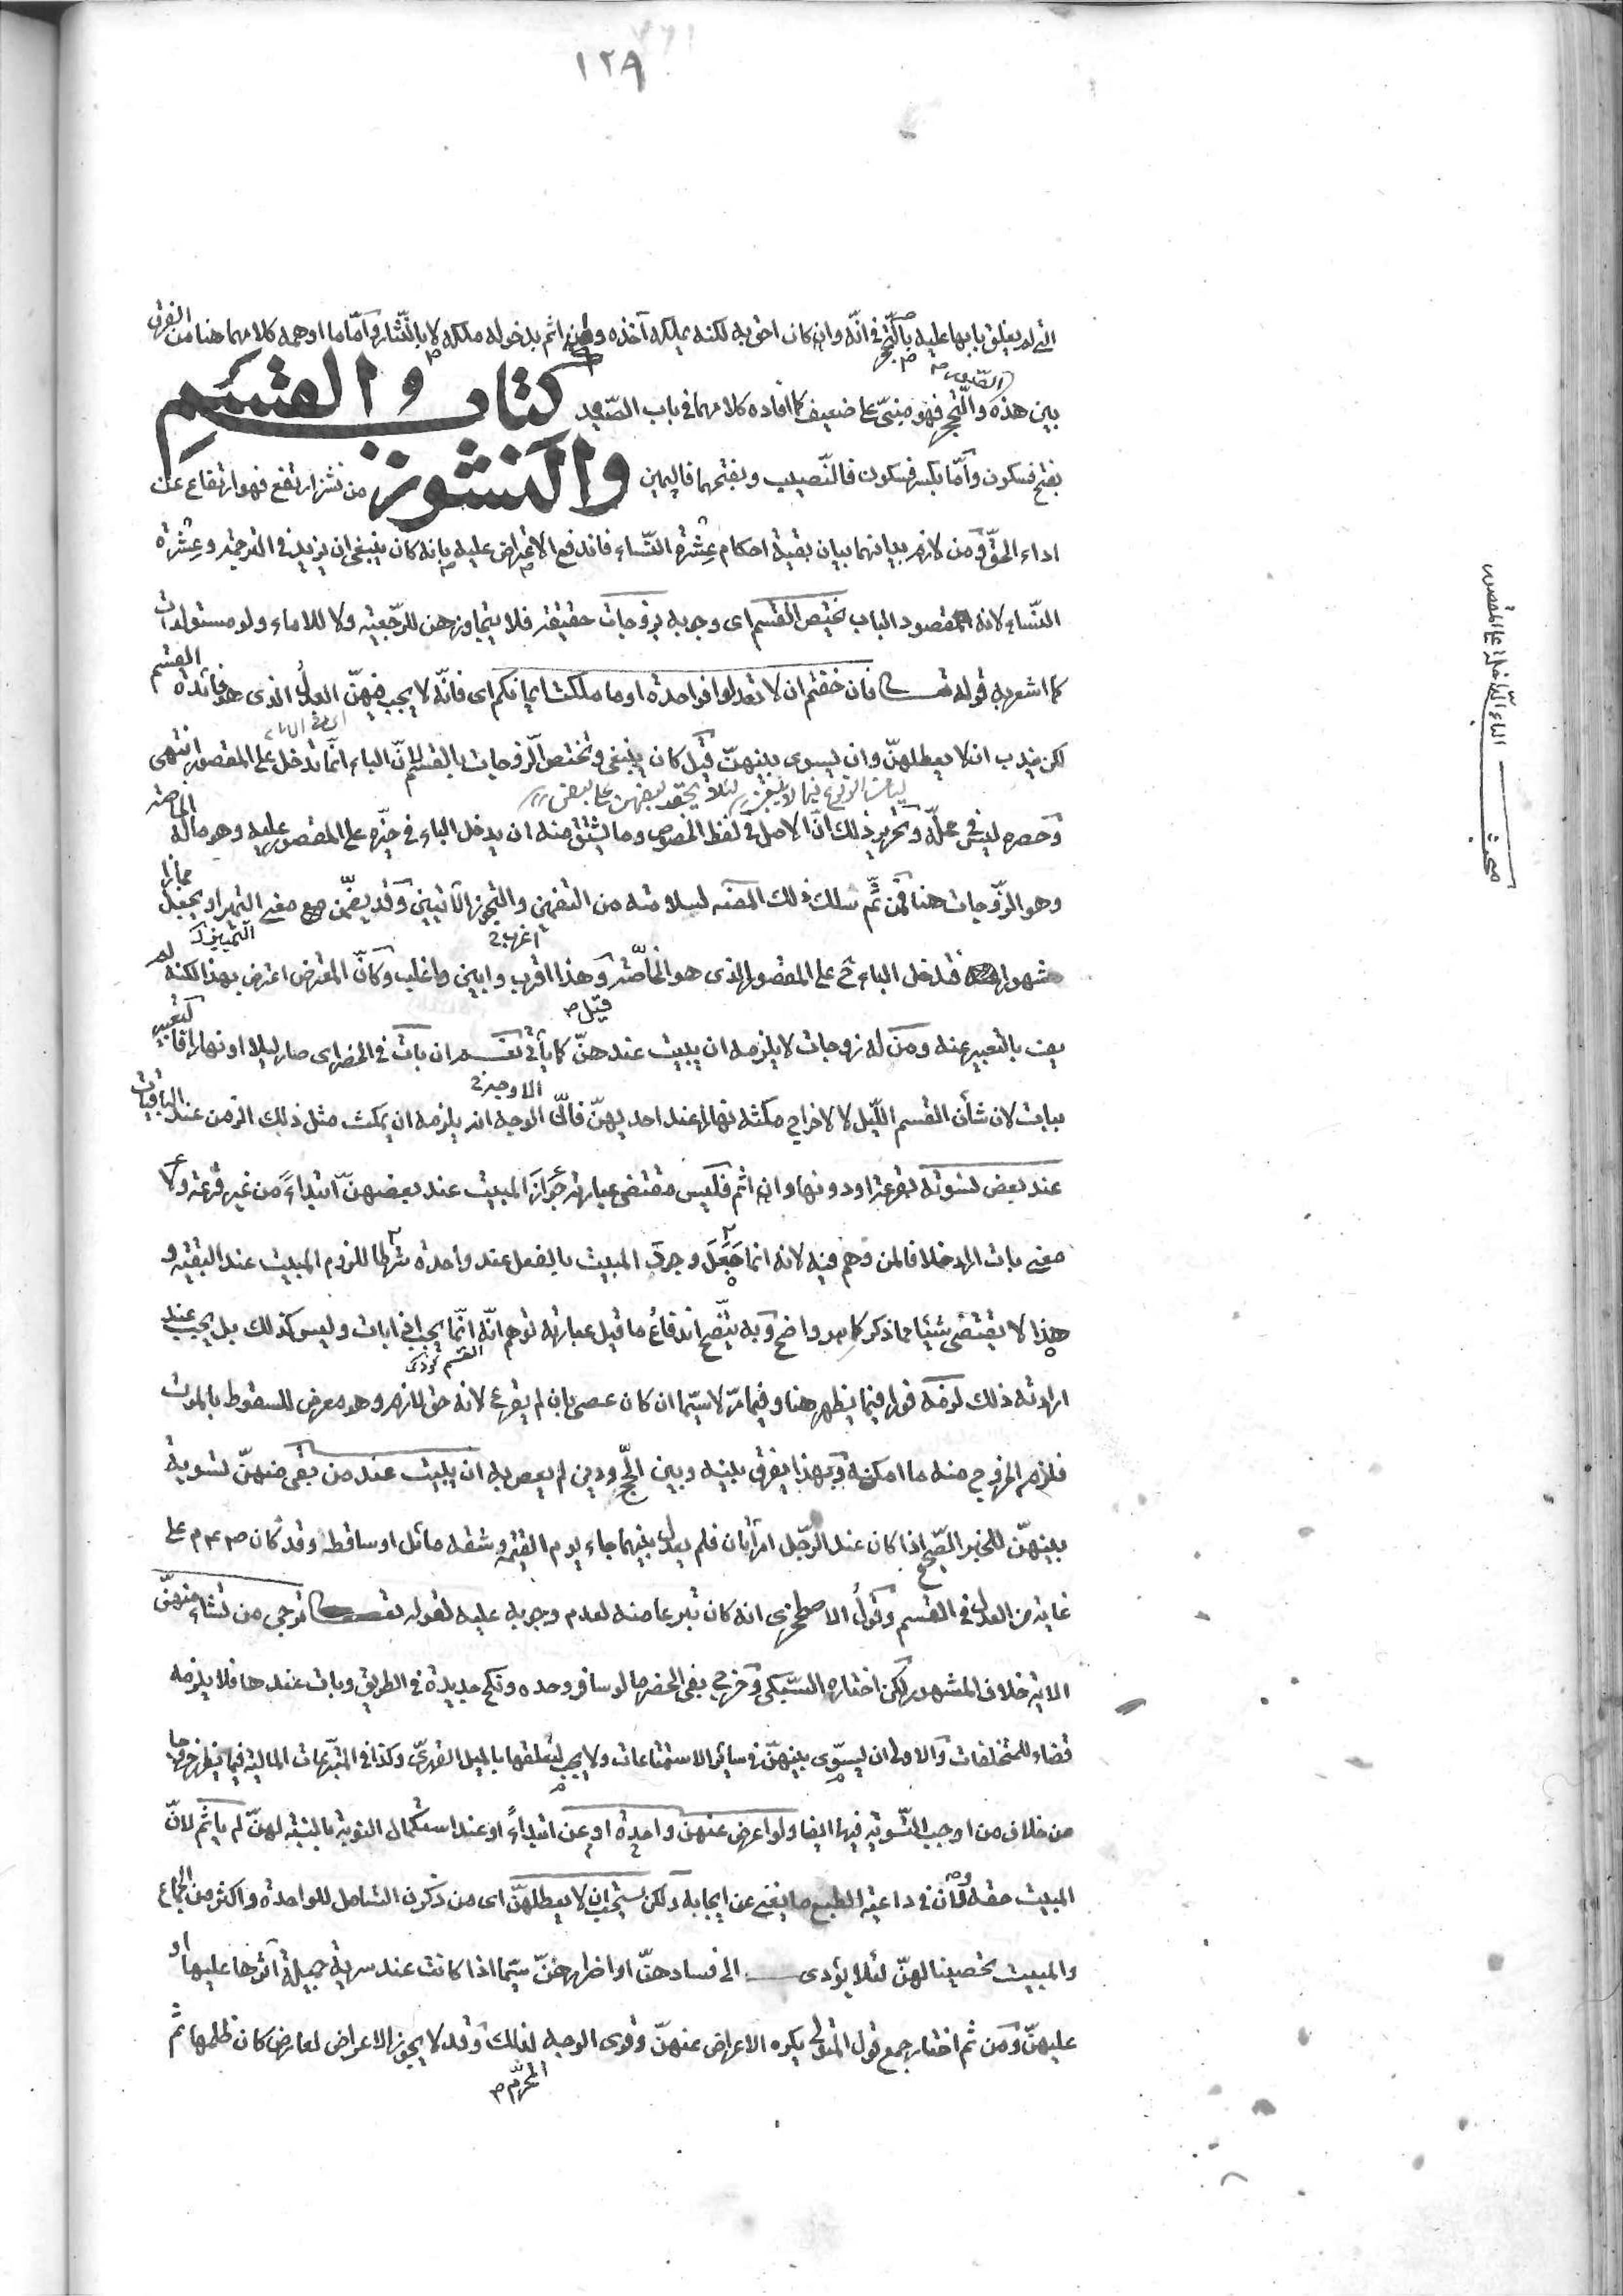 ١٢٩
التي لم يغلق بابها عليه بالكبر في انّه وان كان احق به لكنه يملكه آخذه وان اثم بدخوله ملكه لا بالنّثار وامّا ما اوهمه كلامهما هنا من الفرق
بين هذه والتّحجر فهو مبنيّ على ضعيف كما افاده كلامهما في باب الصّيد كتاب القسم
والنشوز
بفتح فسكون وامّا بكسر فسكون فالنّصيب وبفتحهما فاليمين من نشز ارتفع فهو ارتفاع عن
اداء الحقّ ومن لازم بيانهما بيان بقية احكام عِشرة النّساء فاندفع الاعتراض عليه بانه كان ينبغي ان يزيد في الترجمة وعِشرة
النّساء لانه مقصود الباب يختص القسم اى وجوبه بزوجات حقيقة فلا يتجاوزهن للرّجعية ولا للاماء ولو مستولدات
كما اشعر به قوله تعالى فان خفتم ان لا تعدلوا فواحدة او ما ملكت ايمانكم اى فانّه لا يجب فيهنّ العدل الذى هو فائدة القسم
لكن يندب ان لا يعطلهنّ وان يسوى بينهنّ قيل كان ينبغي وتختص الزّوجات بالقسم لانّ الباء انّما تدخل على المقصور انتهى
لئلا يحقد بعضهن على بعض
وحصره ليس في محلّه وتحرير ذلك انّ الاصل في لفظ الخصوص وما يشتق منه ان يدخل الباء في حيّزه على المقصور عليه وهو ماله الخاصة
وهو الزّوجات هنا فمن ثَمّ سلك ذلك المصنف لسلامته من التضمين والتجوز الآتيين وقد يضمّن مع معنى التميز او يجعل مجازا
مشهورا فتدخل الباء ح على المقصور الذى هو الخاصّة وهذا اقرب وابين واغلب وكانّ المعترض اعترض بهذا لكنه لم
يف بالتعبير عنه ومن له زوجات لا يلزمه ان يبيت عندهنّ كما يأتي نعم ان بات في الحضر اى صار ليلا او نهارا
ببات لان شأن القسم اللّيل لا لاخراج مكثه نهارا عند احديهنّ فانّ الاوجه انه يلزمه ان يمكث مثل ذلك الزمن عند الباقيات
عند بعض نسوته بقرعة او دونها وان اثم فليس مقتضى عبارته جوازَ المبيت عند بعضهنّ ابتداءً من غير قرعة ولا
معنى بات المدخلا فالمن وهم فيه لانه انما جَعَلَ وجود المبيت بالفعل عند واحدة شرطا للزوم المبيت عند البقية و
هذا لا يقتضي شيئا مما ذكر كما هو واضح وبه يتّضح اندفاعُ ما قيل عبارته توهم انّه انّما يجب اذا بات وليس كذلك بل يجب عند
ارادته ذلك لزمه فورا فيما يظهر هنا وفيما مرّ لا سيّما ان كان عصى بان لم يقرع لانه حق لازم وهو معرض للسقوط بالموت
فلزم الخروج منه ما امكنه وبهذا يفرق بينه وبين الحجّ ودين لم يعص به ان يبيت عند من بقى منهنّ تسوية
بينهنّ للخبر الصّحيح اذا كان عند الرّجل امرأتان فلم يعدل بينهما جاء يوم القيٰمة وشقه مائل او ساقط وقد كان صم على
غاية من العدل في القسم وقول الاصطخرى انه كان تبرعا منه لعدم وجوبه عليه لقوله تعالى ترجى من تشاء منهنّ
الاية خلاف المشهور لكن اختاره السّبكى وخرج بفي الحضر ما لو سافر وحده ونكح جديدة في الطريق وبات عندها فلا يلزمه
قضاء للمتخلفات والاولى ان يسوّى بينهنّ في سائر الاستمتاعات ولا يجب لتعلقها بالميل القهرىّ وكذا في التّبرّعات المالية فيما يظهر خروجا
من خلاف من اوجب التّسوية فيها ايضا ولو اعرض عنهن او عن واحدة ابتداءً او عند استكمال النوبة بالنسبة لهنّ لم يأثم لانّ
المبيت حقه ولان في داعية الطبع ما يغني عن ايجابه ولكن يستحب ان لا يعطلهنّ اى من ذكرن الشامل للواحدة واكثر من الجماع
والمبيت تحصينا لهنّ لئلا يؤدى الى فسادهنّ او اضرارهنّ سيّما اذا كانت عند سرية جميلة آثرها عليها او
عليهنّ ومن ثم اختار جمع قول المتولى يكره الاعراض عنهنّ وقوى الوجه لذلك وقد لا يجوز الاعراض لعارض كان ظلمها ثم
مبحث
الباء الدّاخلة على المقصور